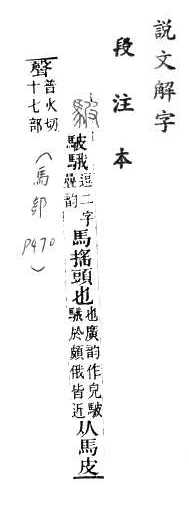 說文解字
段注本
駊 駊騀逗二字疊韵馬搖頭也也廣韵作皃駊騀於頗俄皆近从馬皮
聲普火切十七部(馬部 P470)